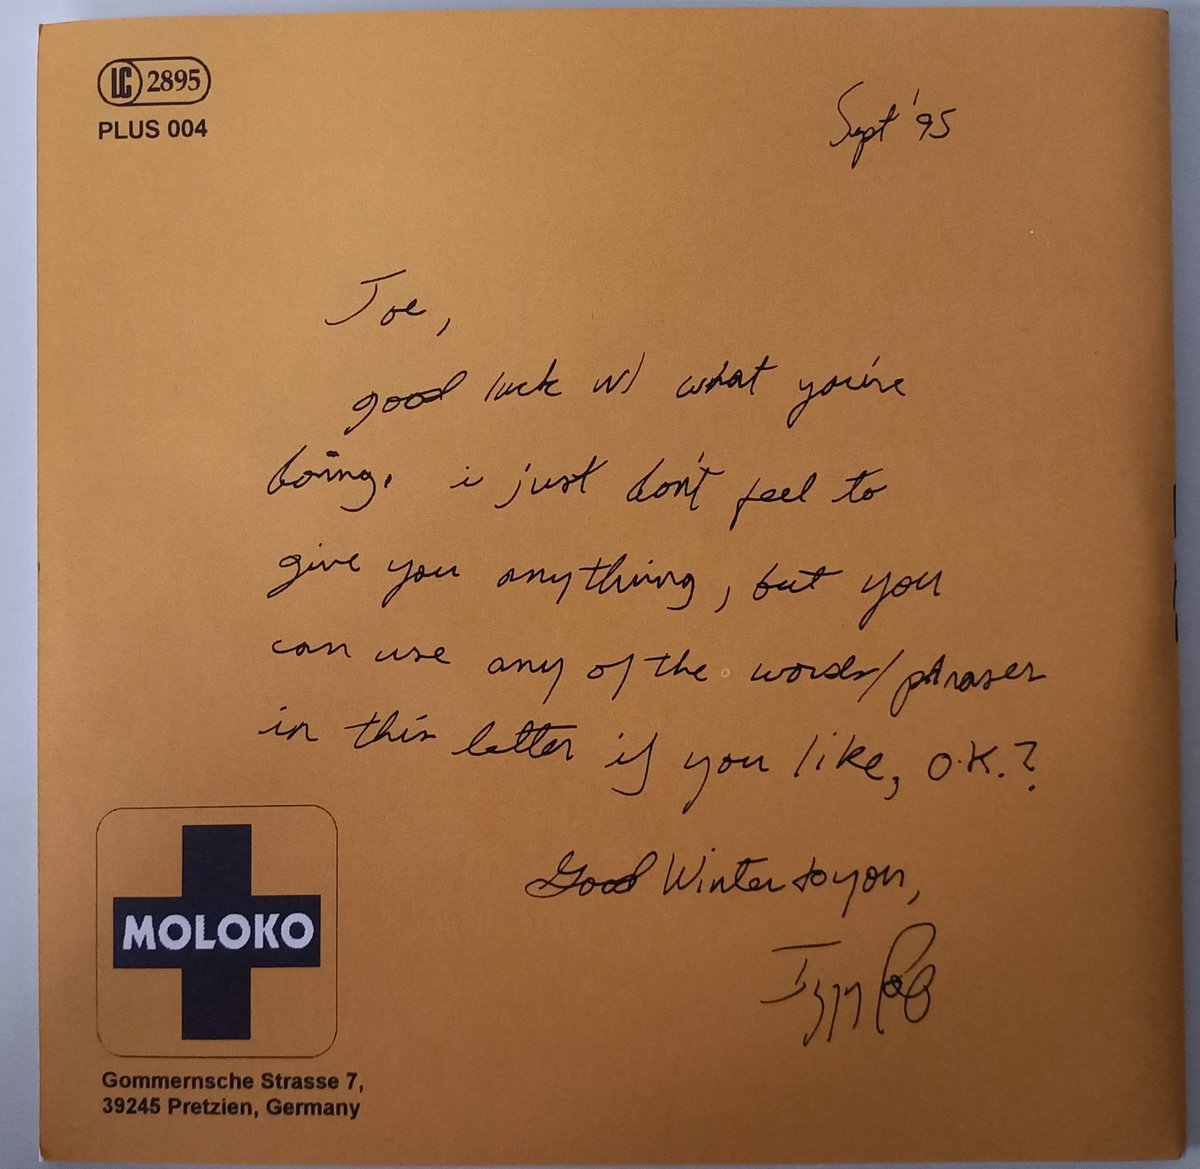 LC 2895
PLUS 004
Sept '95
Joe,
good luck w/ what you're
doing. i just don't feel to
give you anything, but you
can use any of the words/phrases
in this letter if you like, O.K.?
Good Winter to you,
Iggy Pop
MOLOKO
Gommernsche Strasse 7,
39245 Pretzien, Germany